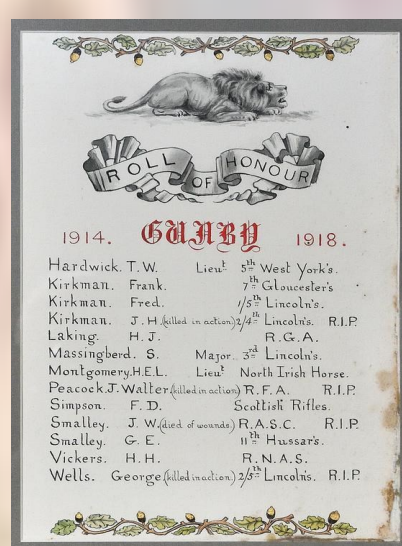 ROLL OF HONOUR
1914. GUNBY 1918.
Hardwick. T.W. Lieut 5th West York's.
Kirkman. Frank. 7th Gloucester's
Kirkman. Fred. 1/5th Lincoln's.
Kirkman. J.H. (killed in action) 2/4th Lincoln's. R.I.P.
Laking. H.J. R.G.A.
Massingberd. S. Major. 3rd Lincoln's.
Montgomery. H.E.L. Lieut North Irish Horse.
Peacock. J. Walter. (killed in action) R.F.A. R.I.P.
Simpson. F.D. Scottish Rifles.
Smalley. J.W. (died of wounds.) R.A.S.C. R.I.P.
Smalley. G.E. 11th Hussar's.
Vickers. H.H. R.N.A.S.
Wells. George. (killed in action.) 2/5th Lincoln's. R.I.P.